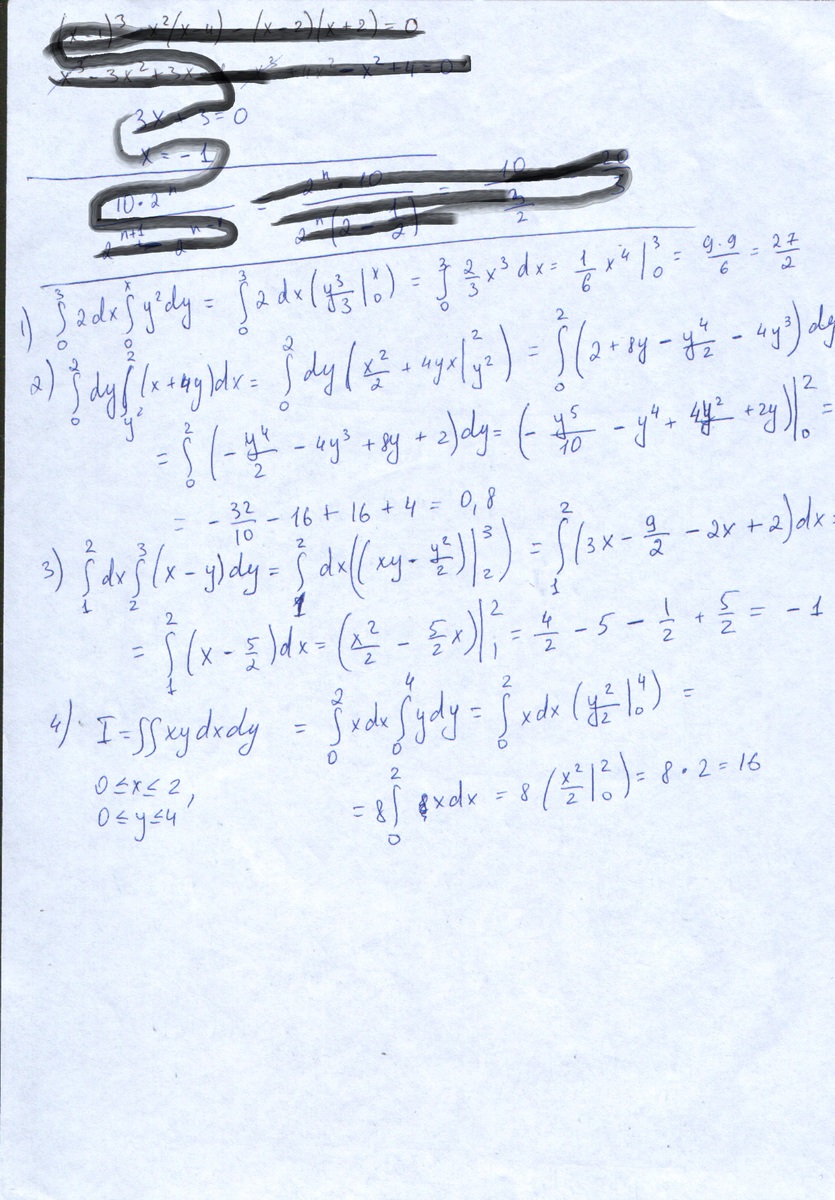 (x-1)³ x²(x-4) - (x-2)(x+2) = 0
x³ - 3x² + 3x x³ 4x² - x² + 4 = 0
3x + 3 = 0
x = -1
10·2ⁿ / 2ⁿ⁺¹ 2ⁿ = 2ⁿ·10 / 2ⁿ(2 - 1/2) = 10
1) ∫₀³ 2dx ∫₀ˣ y²dy = ∫₀³ 2dx (y³/3 |₀ˣ) = ∫₀³ 2/3 x³ dx = 1/6 x⁴ |₀³ = 9·9/6 = 27/2
2) ∫₀² dy ∫_{y²}² (x+4y)dx = ∫₀² dy (x²/2 + 4yx |_{y²}²) = ∫₀² (2 + 8y - y⁴/2 - 4y³) dy
= ∫₀² (-y⁴/2 - 4y³ + 8y + 2)dy = (-y⁵/10 - y⁴ + 4y² + 2y)|₀² =
= -32/10 - 16 + 16 + 4 = 0,8
3) ∫₁² dx ∫₂³ (x-y)dy = ∫₁² dx((xy - y²/2)|₂³) = ∫₁² (3x - 9/2 - 2x + 2)dx =
= ∫₁² (x - 5/2)dx = (x²/2 - 5/2 x)|₁² = 4/2 - 5 - 1/2 + 5/2 = -1
4) I = ∫∫ xy dx dy = ∫₀² xdx ∫₀⁴ ydy = ∫₀² xdx (y²/2 |₀⁴) =
0 ≤ x ≤ 2,
0 ≤ y ≤ 4
= 8∫₀² xdx = 8 (x²/2 |₀²) = 8·2 = 16